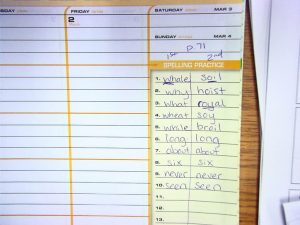 FRIDAY
SATURDAY MAR 3
2
SUNDAY MAR 4
p. 71
1st 2nd
SPELLING PRACTICE
1. whole soil
2. why hoist
3. what royal
4. wheat soy
5. while broil
6. long long
7. about about
8. six six
9. never never
10. seen seen
11.
12.
13.